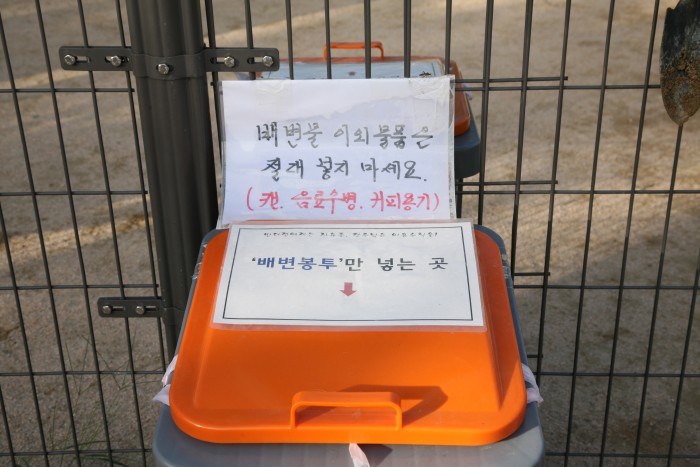 배변물 이외 물품은
절대 넣지 마세요.
(캔. 음료수병. 커피용기)
'배변봉투'만 넣는 곳